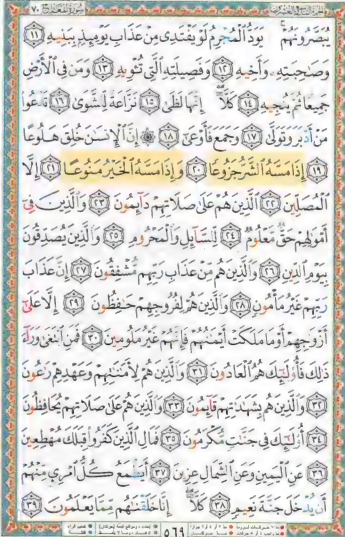 يُبَصَّرُونَهُمْ يَوَدُّ الْمُجْرِمُ لَوْ يَفْتَدِى مِنْ عَذَابِ يَوْمِئِذٍ بِبَنِيهِ ١١
وَصَاحِبَتِهِ وَأَخِيهِ ١٢ وَفَصِيلَتِهِ الَّتِى تُـْٔوِيهِ ١٣ وَمَن فِى الْأَرْضِ
جَمِيعًا ثُمَّ يُنجِيهِ ١٤ كَلَّا إِنَّهَا لَظَىٰ ١٥ نَزَّاعَةً لِّلشَّوَىٰ ١٦ تَدْعُوا۟
مَنْ أَدْبَرَ وَتَوَلَّىٰ ١٧ وَجَمَعَ فَأَوْعَىٰ ١٨ ۞ إِنَّ الْإِنسَانَ خُلِقَ هَلُوعًا
١٩ إِذَا مَسَّهُ الشَّرُّ جَزُوعًا ٢٠ وَإِذَا مَسَّهُ الْخَيْرُ مَنُوعًا ٢١ إِلَّا
الْمُصَلِّينَ ٢٢ الَّذِينَ هُمْ عَلَىٰ صَلَاتِهِمْ دَآئِمُونَ ٢٣ وَالَّذِينَ فِىٓ
أَمْوَٰلِهِمْ حَقٌّ مَّعْلُومٌ ٢٤ لِّلسَّآئِلِ وَالْمَحْرُومِ ٢٥ وَالَّذِينَ يُصَدِّقُونَ
بِيَوْمِ الدِّينِ ٢٦ وَالَّذِينَ هُم مِّنْ عَذَابِ رَبِّهِم مُّشْفِقُونَ ٢٧ إِنَّ عَذَابَ
رَبِّهِمْ غَيْرُ مَأْمُونٍ ٢٨ وَالَّذِينَ هُمْ لِفُرُوجِهِمْ حَٰفِظُونَ ٢٩ إِلَّا عَلَىٰٓ
أَزْوَٰجِهِمْ أَوْ مَا مَلَكَتْ أَيْمَٰنُهُمْ فَإِنَّهُمْ غَيْرُ مَلُومِينَ ٣٠ فَمَنِ ابْتَغَىٰ وَرَآءَ
ذَٰلِكَ فَأُو۟لَٰٓئِكَ هُمُ الْعَادُونَ ٣١ وَالَّذِينَ هُمْ لِأَمَٰنَٰتِهِمْ وَعَهْدِهِمْ رَٰعُونَ
٣٢ وَالَّذِينَ هُم بِشَهَٰدَٰتِهِمْ قَآئِمُونَ ٣٣ وَالَّذِينَ هُمْ عَلَىٰ صَلَاتِهِمْ يُحَافِظُونَ
٣٤ أُو۟لَٰٓئِكَ فِى جَنَّٰتٍ مُّكْرَمُونَ ٣٥ فَمَالِ الَّذِينَ كَفَرُوا۟ قِبَلَكَ مُهْطِعِينَ
٣٦ عَنِ الْيَمِينِ وَعَنِ الشِّمَالِ عِزِينَ ٣٧ أَيَطْمَعُ كُلُّ امْرِئٍ مِّنْهُمْ
أَن يُدْخَلَ جَنَّةَ نَعِيمٍ ٣٨ كَلَّا إِنَّا خَلَقْنَٰهُم مِّمَّا يَعْلَمُونَ ٣٩
٥٦٩